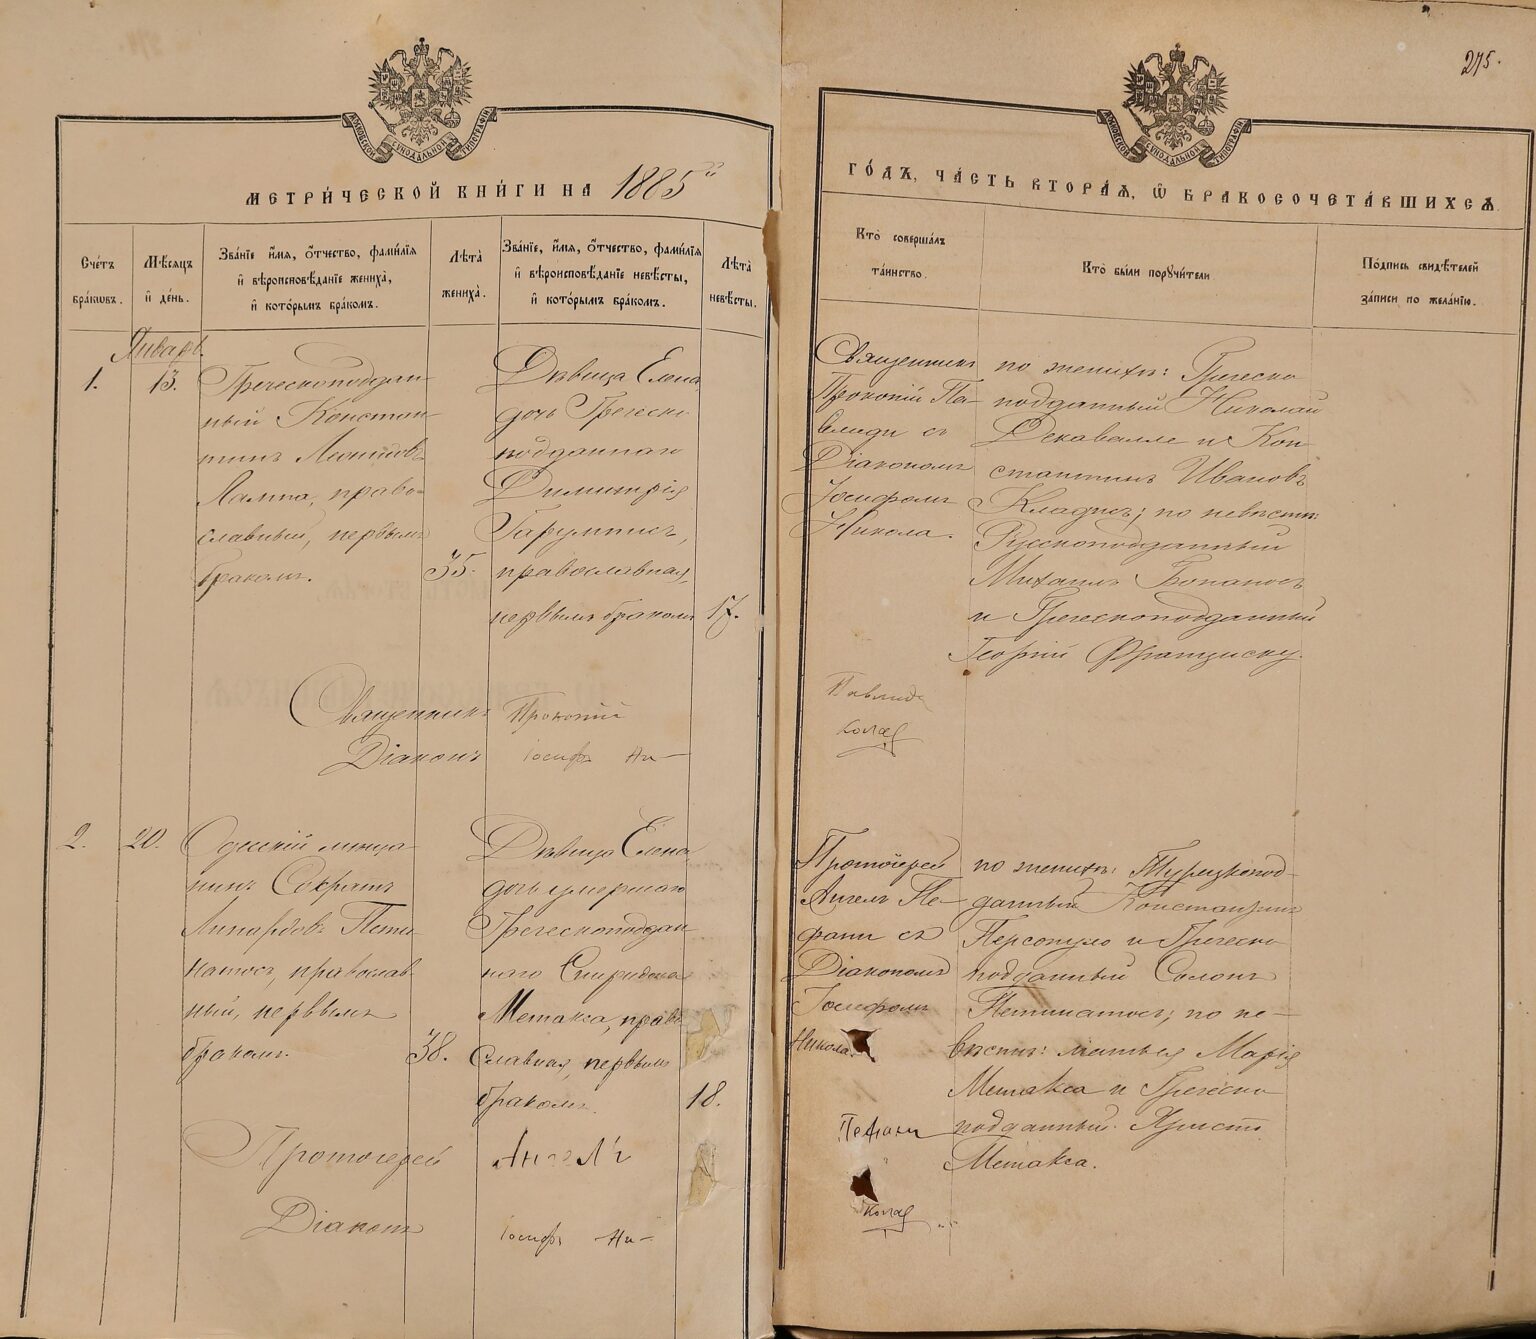 275.
МЕТРИ́ЧЕСКОЙ КНИ́ГИ НА 1885й
ГО́ДЪ, ЧА́СТЬ ВТОРА́Я, Ѿ БРАКОСОЧЕТА́ВШИХСЯ
Сче́тъ
бра́ковъ.
Мѣ́сяцъ
и де́нь.
Зва́нїе, и́мя, о́тчество, фами́лїя
и вѣроисповѣ́данїе жениха̀,
и кото́рымъ бра́комъ.
Лѣта̀
жениха̀.
Зва́нїе, и́мя, о́тчество, фами́лїя
и вѣроисповѣ́данїе невѣ́сты,
и кото́рымъ бра́комъ.
Лѣта̀
невѣ́сты.
Кто̀ соверша́лъ
та́инство.
Кто̀ бы́ли поручи́тели
По́дпись свидѣ́телей
за́писи по жела́нїю.
Январь.
1.
13.
Греческоподдан-
ный Констан-
тинъ
православный, первымъ
бракомъ.
35.
Дѣвица Елена
дочь Греческо
подданнаго
Димитрія
православная,
первымъ бракомъ
17.
Священникъ
Прокопій Па-
влиди съ
Діакономъ
Іосифомъ
Никола.
по женихѣ: Греческо
подданный Николай
Декавалле и Кон-
стантинъ Ивановъ
Кладисъ; по невѣстѣ:
Русскоподданный
Михаилъ
и Греческоподданный
Георгій Франциску.
Священникъ Прокопій
Павлиди
Діаконъ Іосифъ Ни-
кола
2.
20.
Одесскій мѣща-
нинъ Сократъ
Линардовъ Пети-
натосъ, православ-
ный, первымъ
бракомъ.
38.
Дѣвица Елена
дочь умершаго
Греческоподдан-
наго Спиридона
Метакса, право
славная, первымъ
бракомъ.
18.
Протоіерей
Ангелъ Пе-
фани съ
Діакономъ
Іосифомъ
Никола.
по женихѣ: Турецкопод-
данный Константинъ
Персопуло и Греческо
подданный Солонъ
Петинатосъ; по не-
вѣстѣ: мать ея Марія
Метакса и Греческо
подданный Арист.
Метакса.
Протоіерей Ангелъ
Пефани
Діаконъ Іосифъ Ни-
кола